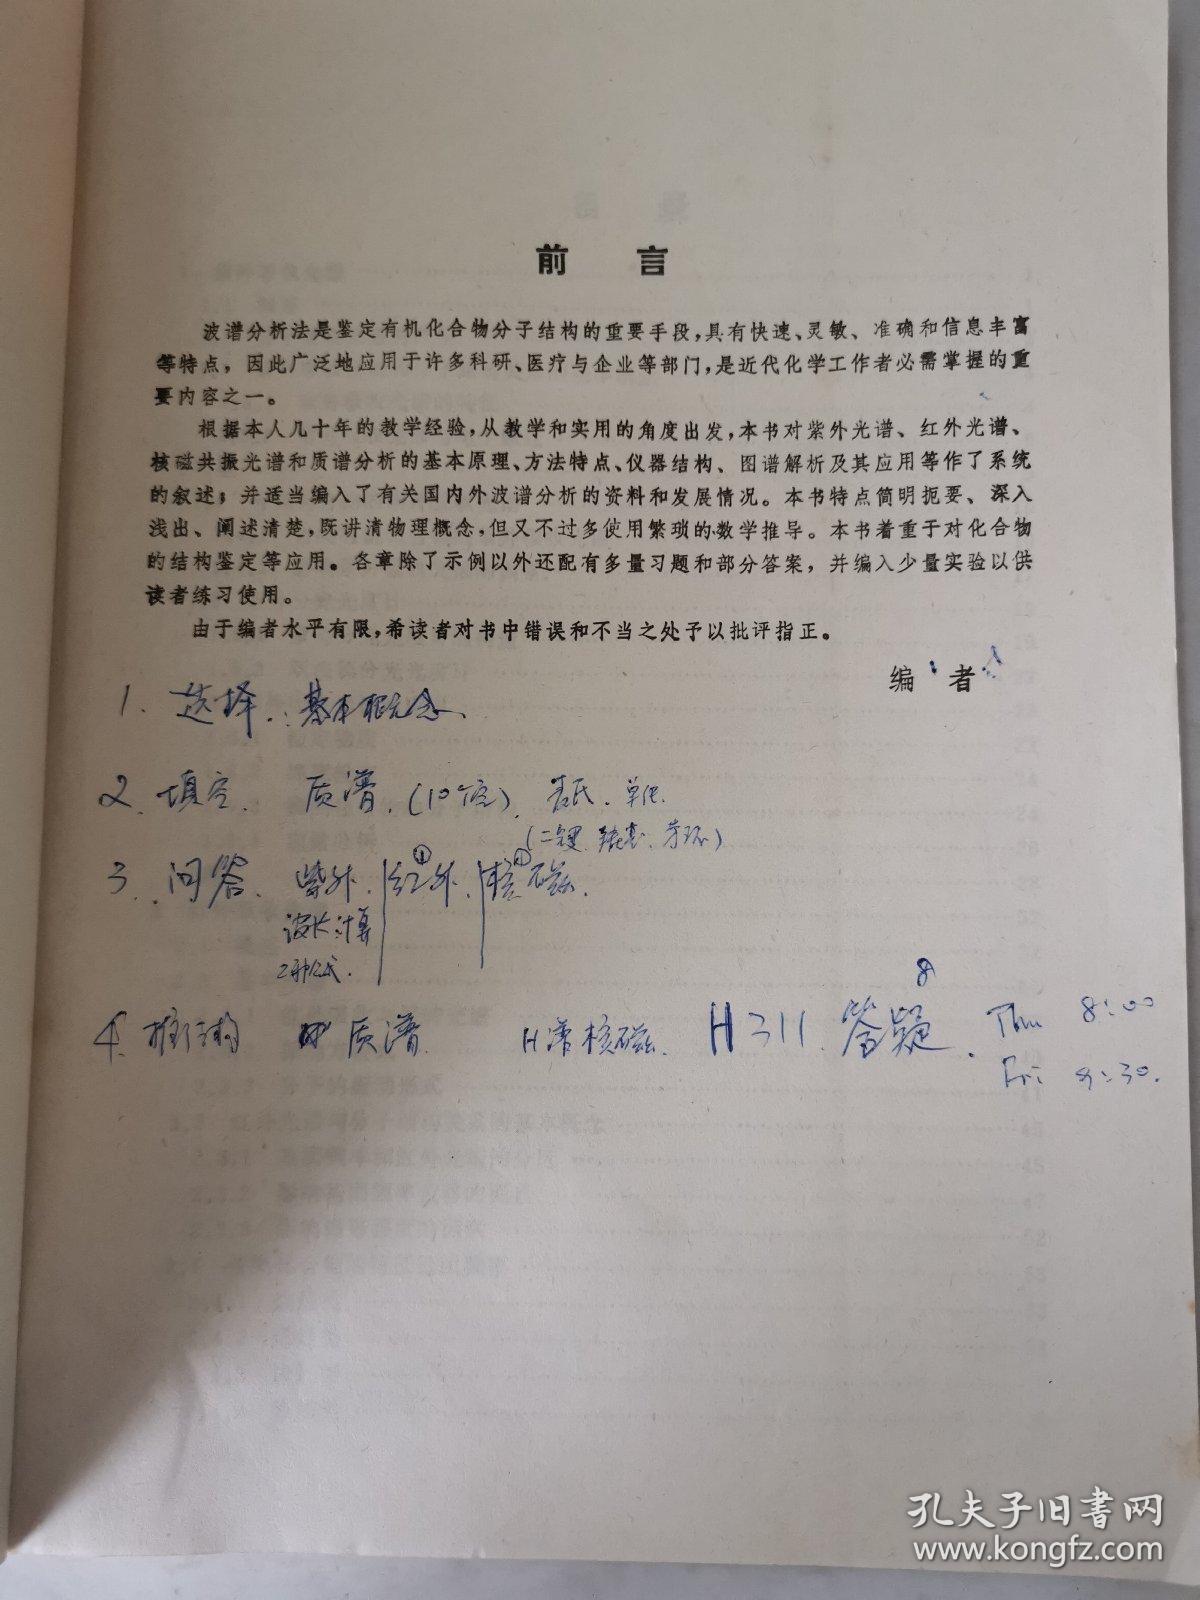 前 言
波谱分析法是鉴定有机化合物分子结构的重要手段,具有快速、灵敏、准确和信息丰富
等特点，因此广泛地应用于许多科研、医疗与企业等部门,是近代化学工作者必需掌握的重
要内容之一。
根据本人几十年的教学经验,从教学和实用的角度出发,本书对紫外光谱、红外光谱、
核磁共振光谱和质谱分析的基本原理、方法特点、仪器结构、图谱解析及其应用等作了系统
的叙述；并适当编入了有关国内外波谱分析的资料和发展情况。本书特点简明扼要、深入
浅出、阐述清楚,既讲清物理概念,但又不过多使用繁琐的数学推导。本书着重于对化合物
的结构鉴定等应用。各章除了示例以外还配有多量习题和部分答案，并编入少量实验以供
读者练习使用。
由于编者水平有限,希读者对书中错误和不当之处予以批评指正。
编 者
1. 选择.: 基本概念
2. 填空. 质谱.(10空).
3. 问答. 紫外. 红外. 核磁.
① ①
波长计算
4. 推结构 质谱. H谱核磁. H311. 答疑. Thu 8:00
8
Fri 8:30.
孔夫子旧书网
www.kongfz.com